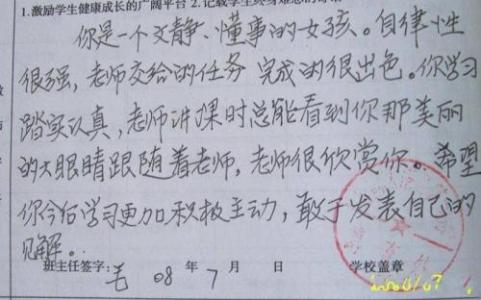 1.激励学生健康成长的广阔平台 2.记载学生终身难忘的
你是一个文静、懂事的女孩。自律性
很强,老师交给的任务完成的很出色。你学习
踏实认真,老师讲课时总能看到你那美丽
的大眼睛跟随着老师,老师很欣赏你。希望
你今后学习更加积极主动,敢于发表自己的
见解。
班主任签字: 08年7月 日 学校盖章